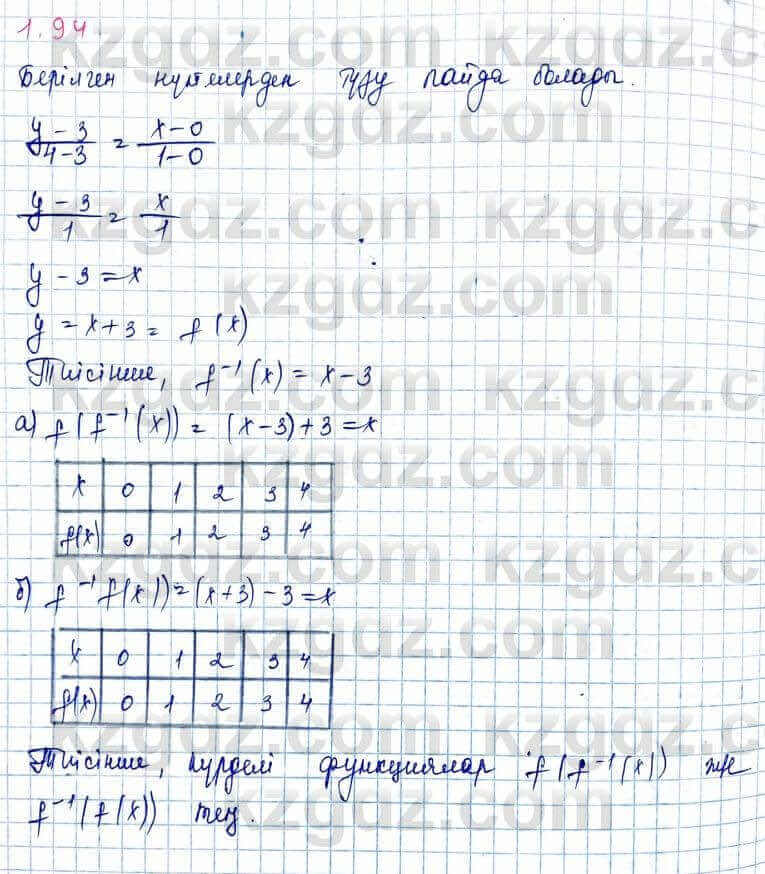 1.94
Берілген нүктелерден түзу пайда болады.
y-3/4-3 = x-0/1-0
y-3/1 = x/1
y-3=x
y=x+3= f(x)
Тиісінше, f⁻¹(x)=x-3
а) f(f⁻¹(x))= (x-3)+3=x
x 0 1 2 3 4
f(x) 0 1 2 3 4
б) f⁻¹f(x))=(x+3)-3=x
x 0 1 2 3 4
f(x) 0 1 2 3 4
Тиісінше, күрделі функциялар f(f⁻¹(x)) же
f⁻¹(f(x)) тең.
kzgdz.com